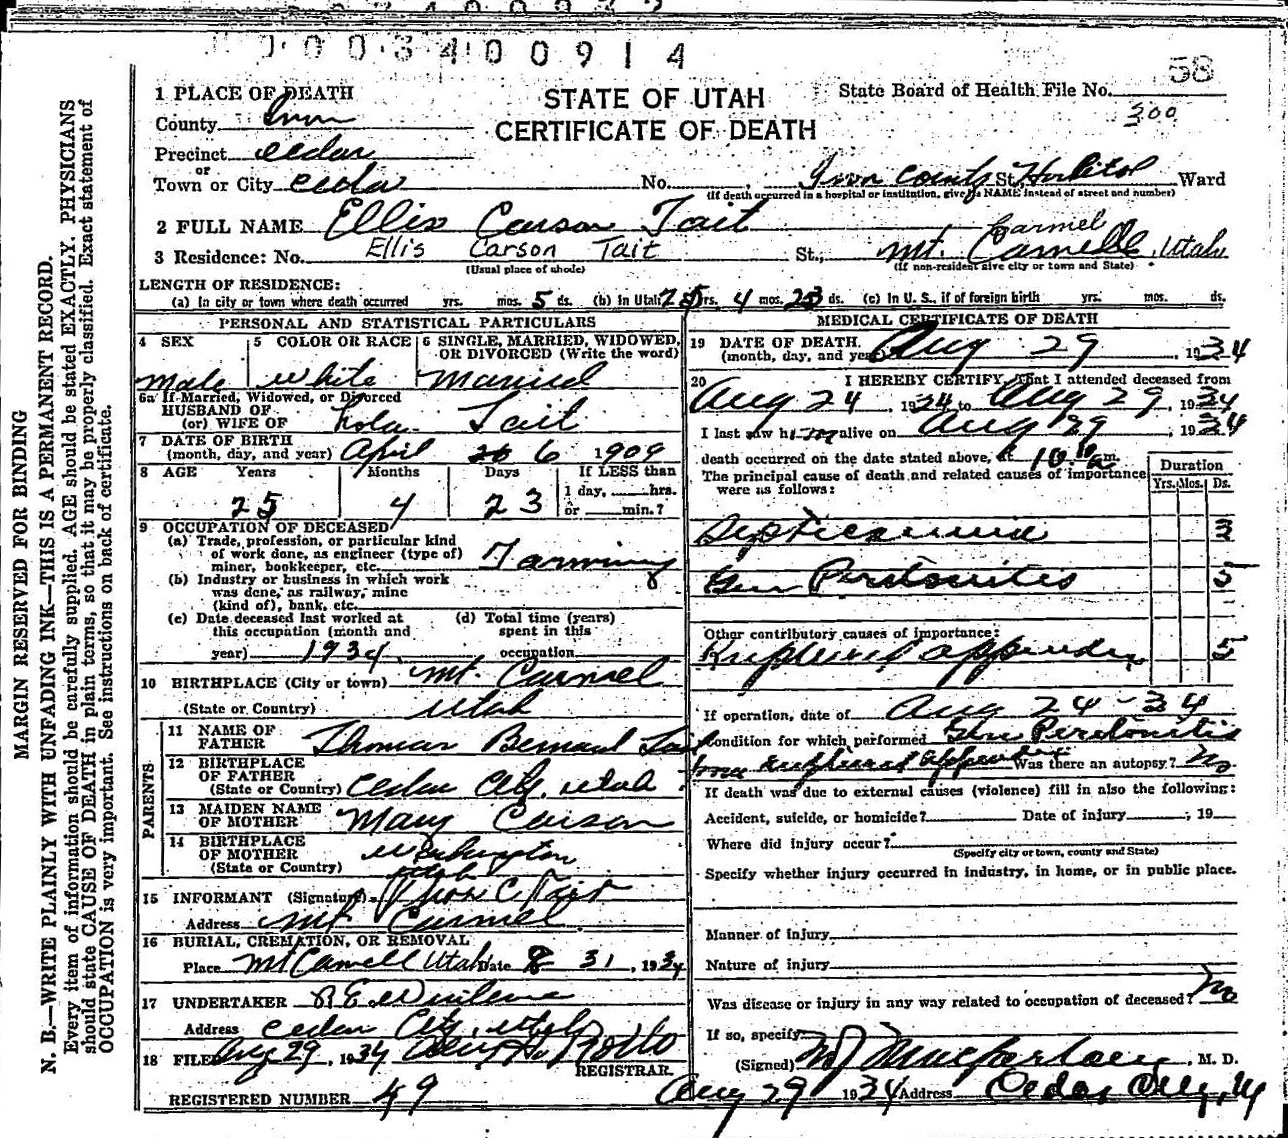 0003400914
58
1 PLACE OF DEATH
STATE OF UTAH
State Board of Health File No.
300
County Iron
CERTIFICATE OF DEATH
Precinct Cedar
or
Town or City Cedar No. Iron County St. Hospital Ward
(If death occurred in a hospital or institution, give its NAME instead of street and number)
2 FULL NAME Ellis Carson Tait
Carmel
3 Residence: No. Ellis Carson Tait St., Mt. Carmelle, Utah
(Usual place of abode) (If non-resident give city or town and State)
LENGTH OF RESIDENCE:
(a) In city or town where death occurred yrs. mos. 5 ds. (b) In Utah 25 yrs. 4 mos. 23 ds. (c) In U. S., if of foreign birth yrs. mos. ds.
PERSONAL AND STATISTICAL PARTICULARS
4 SEX 5 COLOR OR RACE 6 SINGLE, MARRIED, WIDOWED, OR DIVORCED (Write the word)
Male White Married
6a If Married, Widowed, or Divorced
HUSBAND OF
(or) WIFE OF Tait
7 DATE OF BIRTH
(month, day, and year) April 6 1909
8 AGE Years Months Days If LESS than
1 day, hrs.
or min.?
25 4 23
9 OCCUPATION OF DECEASED
(a) Trade, profession, or particular kind
of work done, as engineer (type of)
miner, bookkeeper, etc. Farming
(b) Industry or business in which work
was done, as railway, mine
(kind of), bank, etc.
(c) Date deceased last worked at
this occupation (month and
year) 1934
(d) Total time (years)
spent in this
occupation
10 BIRTHPLACE (City or town) Mt. Carmel
(State or Country) Utah
PARENTS
11 NAME OF
FATHER Thomas Bernard Tait
12 BIRTHPLACE
OF FATHER
(State or Country) Cedar City, Utah
13 MAIDEN NAME
OF MOTHER Mary Carson
14 BIRTHPLACE
OF MOTHER Washington
(State or Country) Utah
15 INFORMANT (Signature) C Tait
Address Mt. Carmel
16 BURIAL, CREMATION, OR REMOVAL
Place Mt Carmell Utah Date 8 31, 1934
17 UNDERTAKER
Address Cedar City, Utah
18 FILED Aug 29, 1934
REGISTRAR.
REGISTERED NUMBER 49
MEDICAL CERTIFICATE OF DEATH
19 DATE OF DEATH
(month, day, and year) Aug 29, 1934
20 I HEREBY CERTIFY, That I attended deceased from
Aug 24, 1934 to Aug 29, 1934
I last saw him alive on Aug 29, 1934
death occurred on the date stated above, at 10 a m.
The principal cause of death and related causes of importance
were as follows:
Duration
Yrs. Mos. Ds.
Septicaemia 3
Gen Peritonitis 5
Other contributory causes of importance:
Ruptured appendix 5
If operation, date of Aug 24-34
Condition for which performed Gen Peritonitis
from ruptured appendix Was there an autopsy? No
If death was due to external causes (violence) fill in also the following:
Accident, suicide, or homicide? Date of injury , 19
Where did injury occur?
(Specify city or town, county and State)
Specify whether injury occurred in industry, in home, or in public place.
Manner of injury
Nature of injury
Was disease or injury in any way related to occupation of deceased? No
If so, specify
(Signed) Macfarlane, M. D.
Aug 29 1934 Address Cedar City, U
MARGIN RESERVED FOR BINDING
N. B.—WRITE PLAINLY WITH UNFADING INK—THIS IS A PERMANENT RECORD.
Every item of information should be carefully supplied. AGE should be stated EXACTLY. PHYSICIANS
should state CAUSE OF DEATH in plain terms, so that it may be properly classified. Exact statement of
OCCUPATION is very important. See instructions on back of certificate.